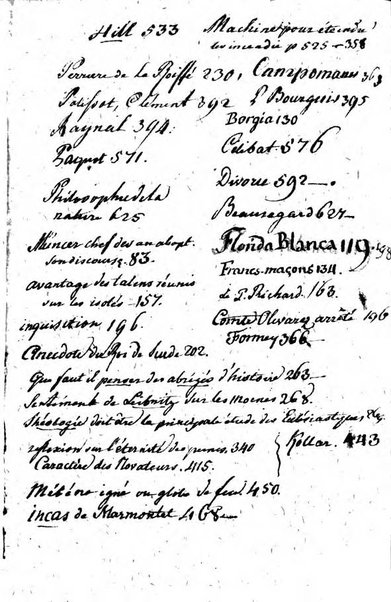 Hill 533
Machines pour éteindre
les incendies p 525 - 358
Perriere de la Roiffé 230, Campomanes 363
Palissot, Clément 392 P Bourgeois 395
Raynal 394.
Borgia 130
Paquot 571.
Celibat 576
Divorce 592
Philosophie de la
nature 625
Beauregard 627
Münter chef des anabapt.
son discours 83.
Florida Blanca 119. 198
Francs-maçons 134
avantage des talens réunis
sur les isolés . 157.
de P. Richard . 163.
inquisition 196.
Comte Olivarez arrêté 196
Formey 366
Anecdote du Roi de Suede 202.
Que faut il penser des abrégés d'histoire 263
Sentimens de Leibnitz sur les moines 268.
théologie doit être la principale étude des Ecclésiastiques
reflexion sur l'éternité des peines, 340
Kollar. 443
Caractère des Novateurs. 415.
Météore igné ou globe de feu 450.
incas de Marmontel 468